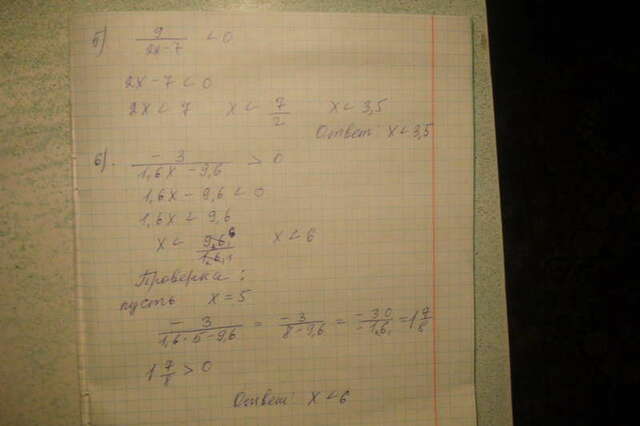 б) 9/(2x-7) < 0
2x-7 < 0
2x < 7 x < 7/2 x < 3,5
Ответ: x < 3,5
в). -3/(1,6x-9,6) > 0
1,6x - 9,6 < 0
1,6x < 9,6
x < 9,6/1,6 x < 6
Проверка:
пусть x = 5
-3/(1,6·5-9,6) = -3/(8-9,6) = -30/-1,6 = 1 7/8
1 7/8 > 0
Ответ: x < 6